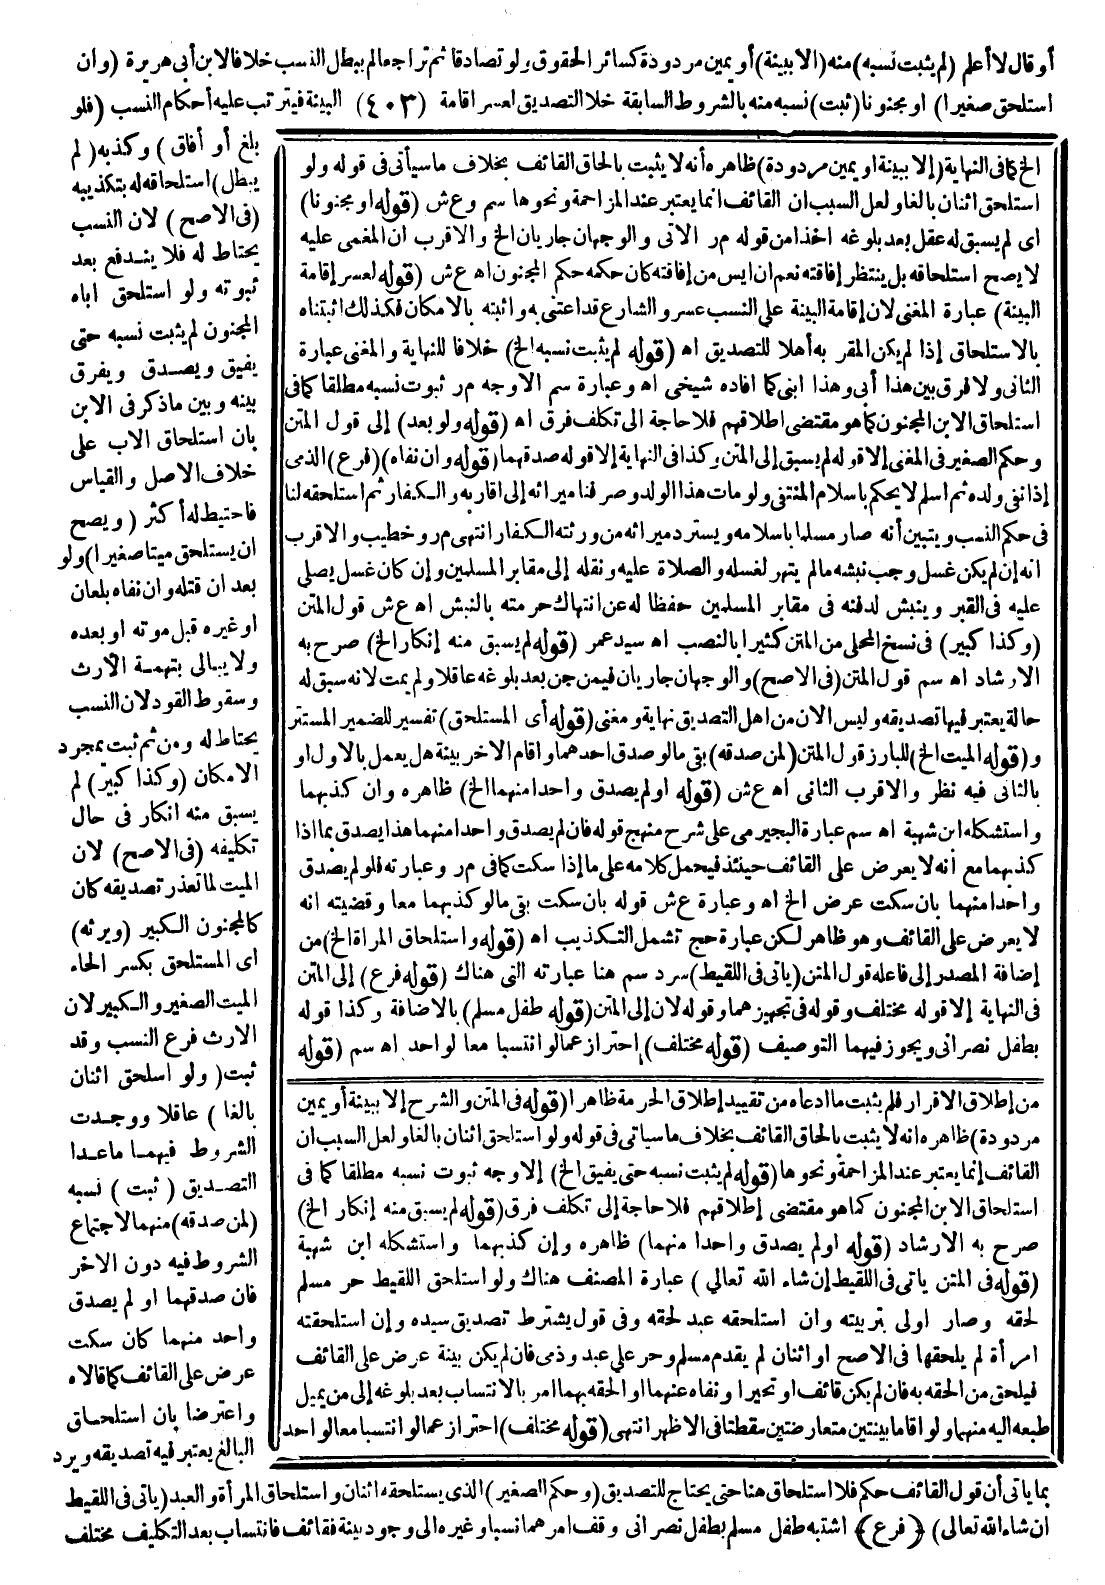 أو قال لا أعلم (لم يثبت نسبه) منه (الا ببينة) أو يمين مردودة كسائر الحقوق ولو تصادقا ثم تراجعا لم يبطل النسب خلافا لابن أبى هريرة (وان
استلحق صغيرا) او مجنونا (ثبت) نسبه منه بالشروط السابقة خلا التصديق لعسر اقامة (٤٠٣) البينة فيترتب عليه أحكام النسب (فلو
بلغ أو أفاق) وكذبه (لم
يبطل) استلحاقه له بتكذيبه
(فى الاصح) لان النسب
يحتاط له فلا يندفع بعد
ثبوته ولو استلحق اباه
المجنون لم يثبت نسبه حتى
يفيق ويصدق ويفرق
بينه وبين ماذكر فى الابن
بان استلحاق الاب على
خلاف الاصل والقياس
فاحتيط له أكثر (ويصح
ان يستلحق ميتا صغيرا) ولو
بعد ان قتله وان نفاه بلعان
او غيره قبل موته او بعده
ولا يبالى بتهمة الارث
وسقوط القود لان النسب
يحتاط له ومن ثم ثبت بمجرد
الامكان (وكذا كبير) لم
يسبق منه انكار فى حال
تكليفه (فى الاصح) لان
الميت لما تعذر تصديقه كان
كالمجنون الكبير (ويرثه)
اى المستلحق بكسر الحاء
الميت الصغير والكبير لان
الارث فرع النسب وقد
ثبت (ولو اسلحق اثنان
بالغا) عاقلا ووجدت
الشروط فيهما ماعدا
التصديق (ثبت) نسبه
(لمن صدقه) منهما لاجتماع
الشروط فيه دون الاخر
فان صدقهما او لم يصدق
واحد منهما كان سكت
عرض على القائف كما قالاه
واعترضا بان استلحاق
البالغ يعتبر فيه تصديقه ويرد
بما ياتى أن قول القائف حكم فلا استلحاق هنا حتى يحتاج للتصديق (وحكم الصغير) الذى يستلحقه اثنان واستلحاق المرأة والعبد (ياتى فى اللقيط
ان شاء الله تعالى) ﴿فرع﴾ اشتبه طفل مسلم بطفل نصرانى وقف امرهما نسبا وغيره الى وجود بينة فقائف فانتساب بعد التكليف مختلف
الخ كما فى النهاية (إلا ببينة او يمين مردودة) ظاهره أنه لا يثبت بالحاق القائف بخلاف ما سيأتى فى قوله ولو
استلحق اثنان بالغا ولعل السبب ان القائف انما يعتبر عند المزاحمة ونحوها سم وع ش (قوله او مجنونا)
اى لم يسبق له عقل بعد بلوغه اخذا من قوله مر الاتى والوجهان جاريان الخ والاقرب ان المغمى عليه
لا يصح استلحاقه بل ينتظر إفاقته نعم ان ايس من إفاقته كان حكمه حكم المجنون اه ع ش (قوله لعسر إقامة
البينة) عبارة المغنى لان إقامة البينة على النسب عسر والشارع قد اعتنى به واثبته بالامكان فكذلك اثبتناه
بالاستلحاق إذا لم يكن المقر به أهلا للتصديق اه (قوله لم يثبت نسبه الخ) خلافا للنهاية والمغنى عبارة
الثانى ولا فرق بين هذا أبى وهذا ابنى كما افاده شيخى اه وعبارة سم الاوجه مر ثبوت نسبه مطلقا كما فى
استلحاق الابن المجنون كما هو مقتضى اطلاقهم فلا حاجة الى تكلف فرق اه (قوله ولو بعد) إلى قول المتن
وحكم الصغير فى المغنى إلا قوله لم يسبق إلى المتن وكذا فى النهاية إلا قوله صدقهما (قوله وان نفاه) (فرع) الذى
إذا نفى ولده ثم اسلم لا يحكم باسلام المنتفى ولو مات هذا الولد وصرفنا ميراثه إلى اقاربه والكفار ثم استلحقه لنا
فى حكم النسب ويتبين أنه صار مسلما باسلامه ويسترد ميراثه من ورثته الكفار انتهى مر وخطيب والاقرب
انه إن لم يكن غسل وجب نبشه مالم يتهر لغسله والصلاة عليه ونقله إلى مقابر المسلمين وإن كان غسل يصلى
عليه فى القبر وينبش لدفنه فى مقابر المسلمين حفظا له عن انتهاك حرمته بالنبش اه ع ش قول المتن
(وكذا كبير) فى نسخ المحلى من المتن كثيرا بالنصب اه سيد عمر (قوله لم يسبق منه إنكار الخ) صرح به
الارشاد اه سم قول المتن (فى الاصح) والوجهان جاريان فيمن جن بعد بلوغه عاقلا ولم يمت لانه سبق له
حالة يعتبر فيها تصديقه وليس الان من اهل التصديق نهاية ومغنى (قوله أى المستلحق) تفسير للضمير المستتر
و (قوله الميت الخ) للبارز قول المتن (لمن صدقه) بقى مالو صدق احدهما واقام الاخر بينة هل يعمل بالاول او
بالثانى فيه نظر والاقرب الثانى اه ع ش (قوله او لم يصدق واحدا منهما الخ) ظاهره وان كذبهما
واستشكله ابن شهبة اه سم عبارة البجيرمى على شرح منهج قوله فان لم يصدق واحدا منهما هذا يصدق بما اذا
كذبهما مع أنه لا يعرض على القائف حينئذ فيحمل كلامه على ما إذا سكت كما فى مر وعبارته فلو لم يصدق
واحدا منهما بان سكت عرض الخ اه وعبارة ع ش قوله بان سكت بقى مالو كذبهما معا وقضيته انه
لا يعرض على القائف وهو ظاهر لكن عبارة حج تشمل التكذيب اه (قوله واستلحاق المراة الخ) من
إضافة المصدر إلى فاعله قول المتن (ياتى فى اللقيط) سرد سم هنا عبارته التى هناك (قوله فرع) إلى المتن
فى النهاية إلا قوله مختلف وقوله فى تجهيزهما وقوله لان إلى المتن (قوله طفل مسلم) بالاضافة وكذا قوله
بطفل نصرانى ويجوز فيهما التوصيف (قوله مختلف) احتراز عما لو انتسبا معا لواحد اه سم (قوله
من إطلاق الاقرار فلم يثبت ما ادعاه من تقييد إطلاق الحرمة ظاهرا (قوله فى المتن والشرح إلا ببينة أو يمين
مردودة) ظاهره انه لا يثبت بالحاق القائف بخلاف ما سياتى فى قوله ولو استلحق اثنان بالغا ولعل السبب ان
القائف إنما يعتبر عند المزاحمة ونحوها (قوله لم يثبت نسبه حتى يفيق الخ) إلا وجه ثبوت نسبه مطلقا كما فى
استلحاق الابن المجنون كما هو مقتضى إطلاقهم فلا حاجة إلى تكلف فرق (قوله لم يسبق منه إنكار الخ)
صرح به الارشاد (قوله او لم يصدق واحدا منهما) ظاهره وإن كذبهما واستشكله ابن شهبة
(قوله فى المتن ياتى فى اللقيط إن شاء الله تعالى) عبارة المصنف هناك ولو استلحق اللقيط حر مسلم
لحقه وصار اولى بتربيته وان استلحقه عبد لحقه وفى قول يشترط تصديق سيده وإن استلحقته
امرأة لم يلحقها فى الاصح او اثنان لم يقدم مسلم وحر على عبد وذى فان لم يكن بينة عرض على القائف
فيلحق من الحقه به فان لم يكن قائف او تحير او نفاه عنهما او الحقه بهما امر بالانتساب بعد بلوغه إلى من يميل
طبعه اليه منهما ولو اقاما بينتين متعارضتين سقطتا فى الاظهر انتهى (قوله مختلف) احتراز عما لو انتسبا معا لواحد